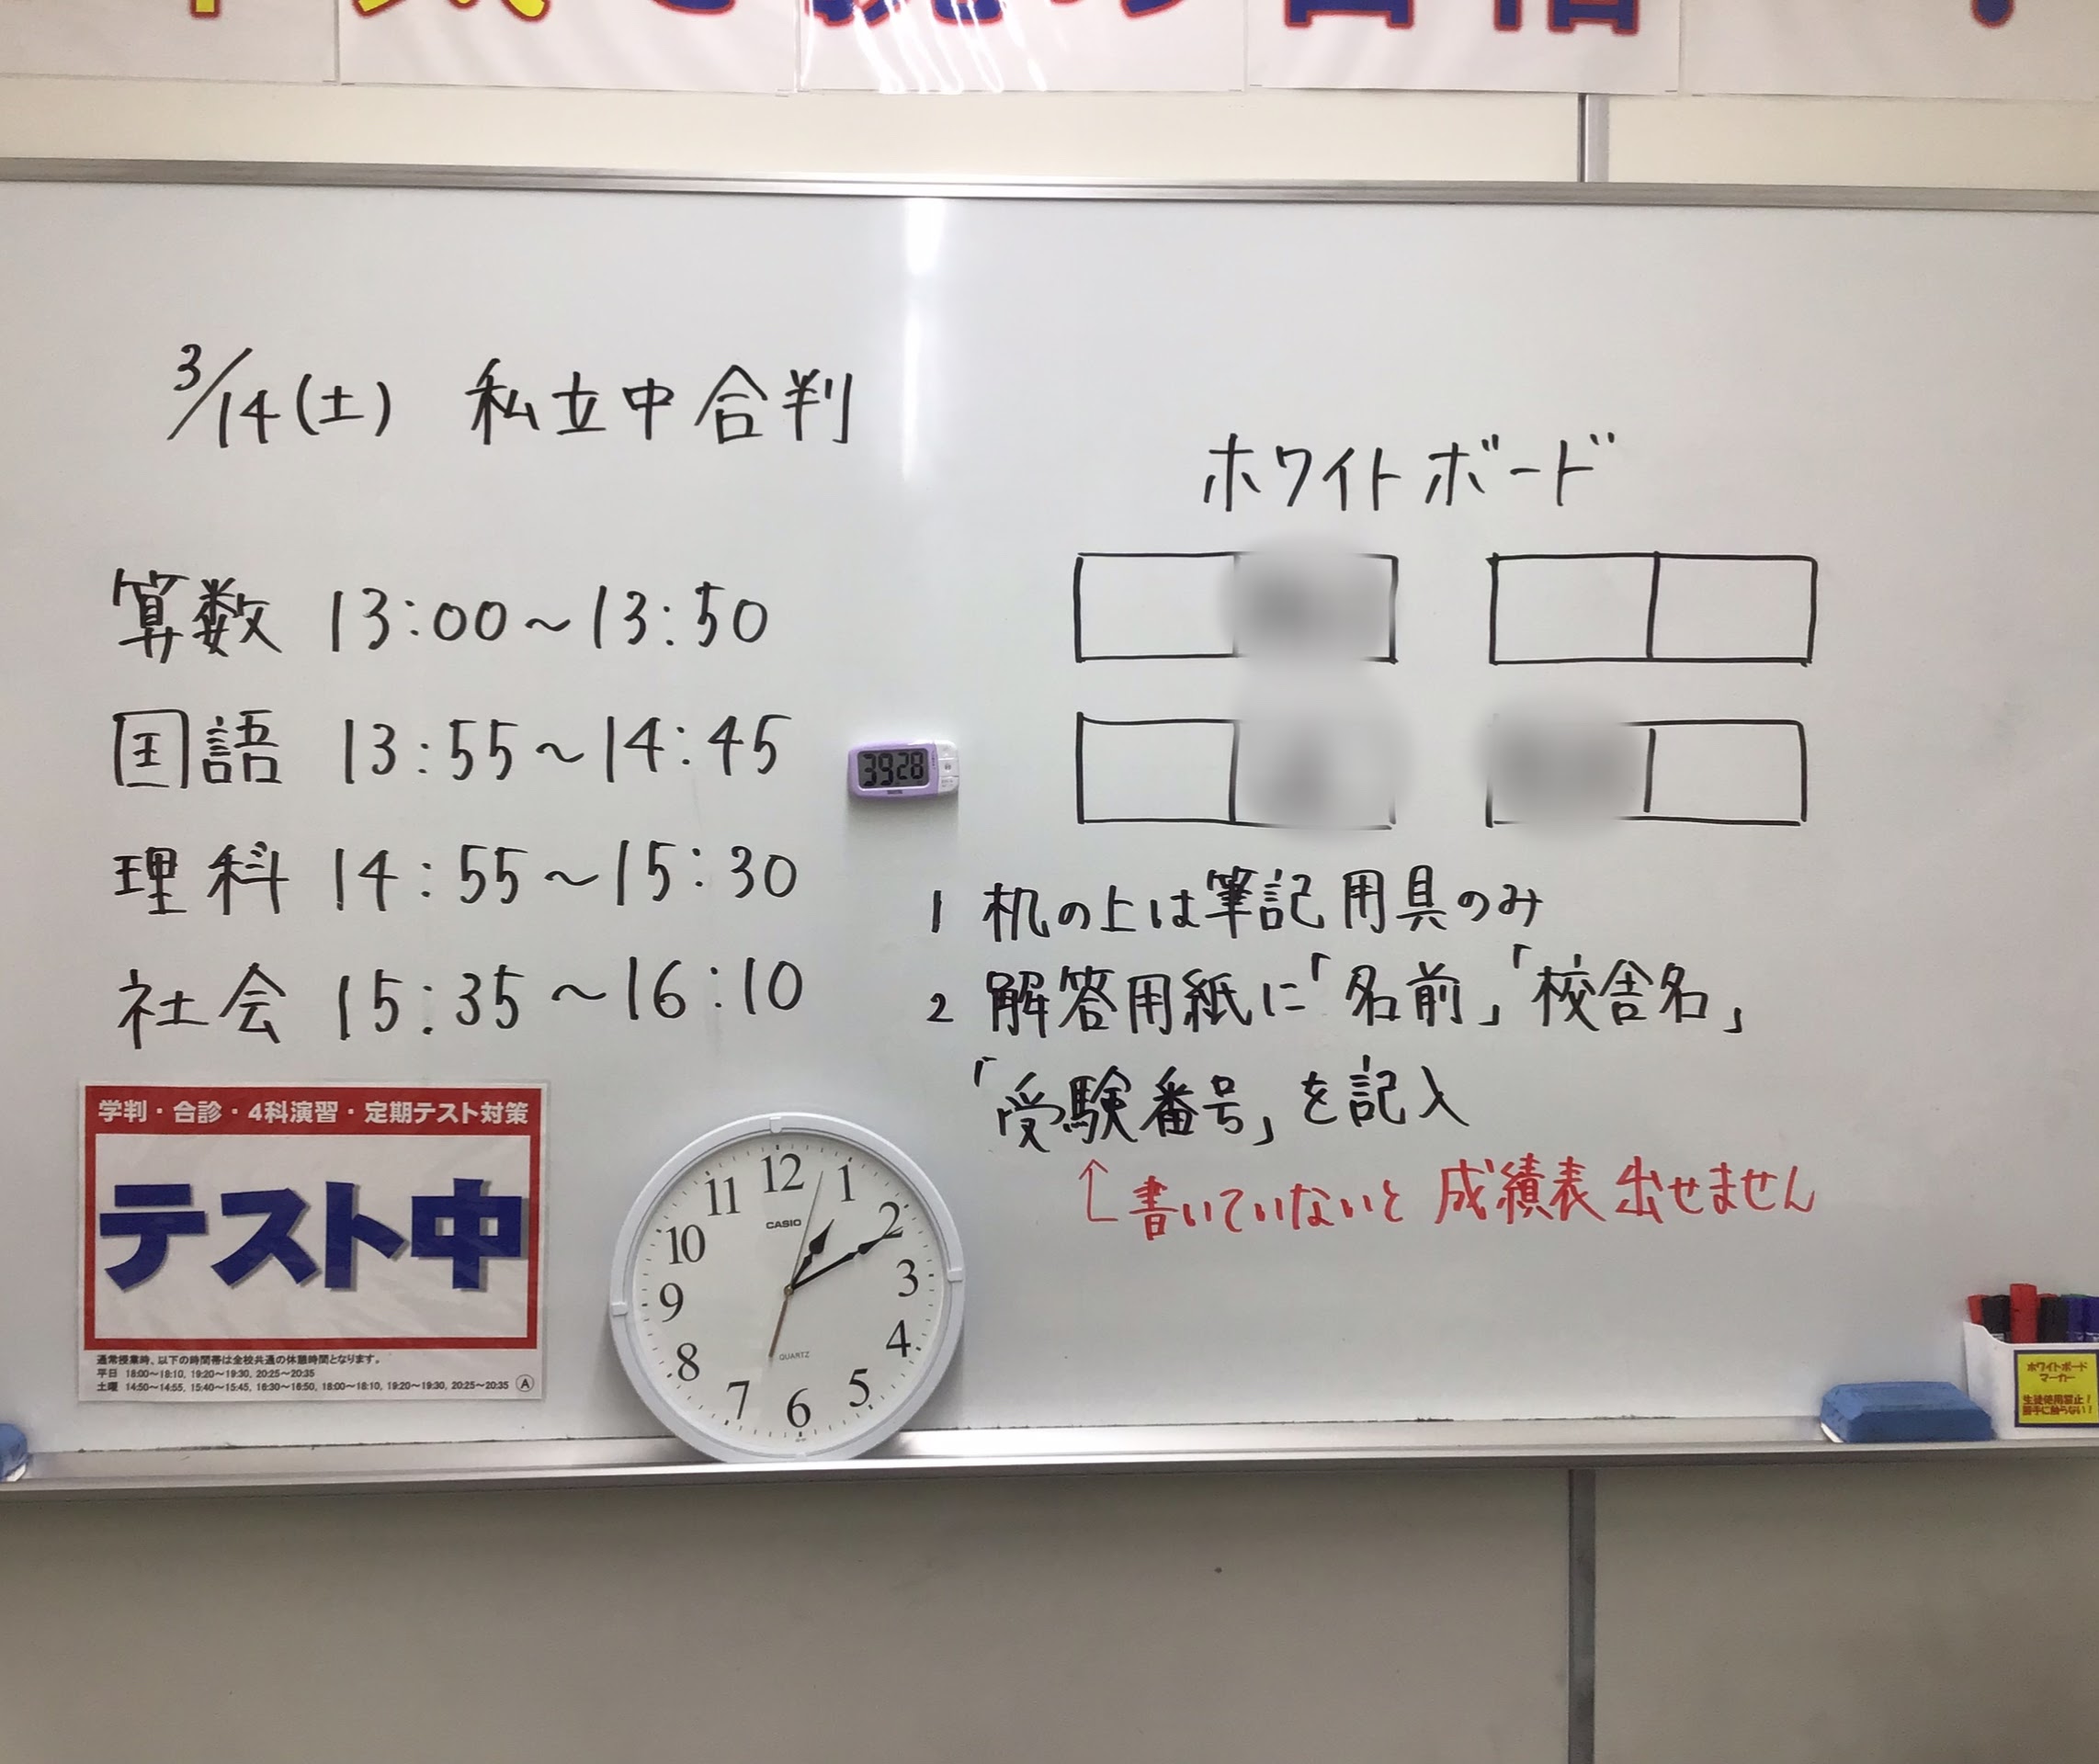 3/14(土) 私立中合判
算数 13:00～13:50
国語 13:55～14:45
理科 14:55～15:30
社会 15:35～16:10
ホワイトボード
1 机の上は筆記用具のみ
2 解答用紙に「名前」「校舎名」
「受験番号」を記入
↑書いていないと 成績表 出せません
39 28
学判・合診・4科演習・定期テスト対策
テスト中
通常授業時、以下の時間帯は全校共通の休憩時間となります。
平日 18:00～18:10, 19:20～19:30, 20:25～20:35
土曜 14:50～14:55, 15:40～15:45, 16:30～16:50, 18:00～18:10, 19:20～19:30, 20:25～20:35 Ⓐ
12 1 2 3 4 5 6 7 8 9 10 11
CASIO
QUARTZ
ホワイトボード
マーカー
生徒使用禁止！
勝手に触らない！